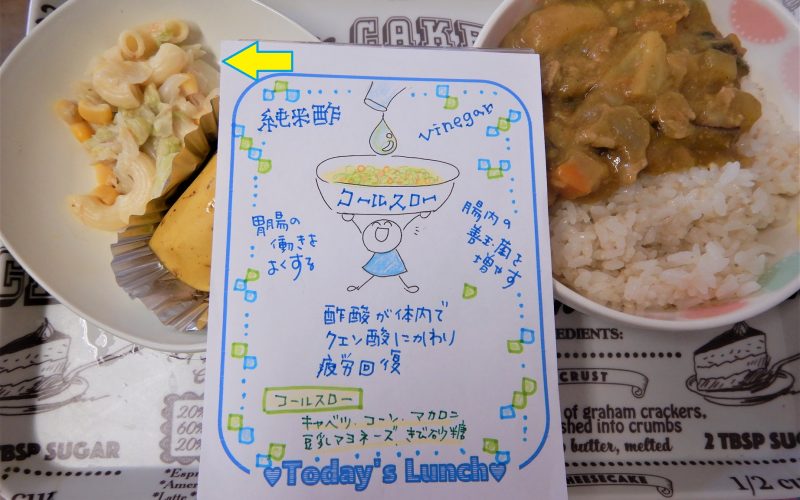 CAKE
純米酢
vinegar
コールスロー
胃腸の
働きを
よくする
腸内の
善玉菌を
増やす
酢酸が体内で
クエン酸にかわり
疲労回復
コールスロー
キャベツ、コーン、マカロニ
豆乳マヨネーズ、きび砂糖
Today's Lunch
TBSP SUGAR
20%
60%
20%
*Latte
EDIENTS:
CRUST
of graham crackers,
shed into crumbs
butter, melted
2 TBSP SUGAR
CHEESECAKE
1/2 cu